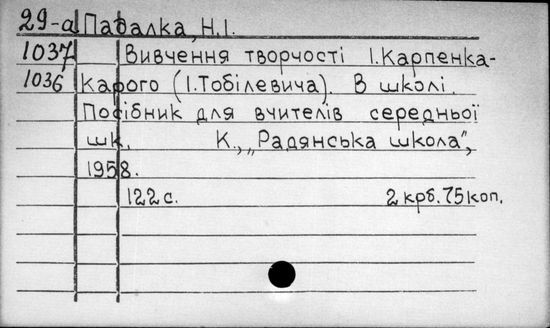 29-а Падалка, Н.І.
1037 Вивчення творчості І.Карпенка-
1036 Карого (І.Тобілевича). В школі.
Посібник для вчителів середньої
шк. К., „Радянська школа",
1958.
122 с. 2 крб. 75 коп.